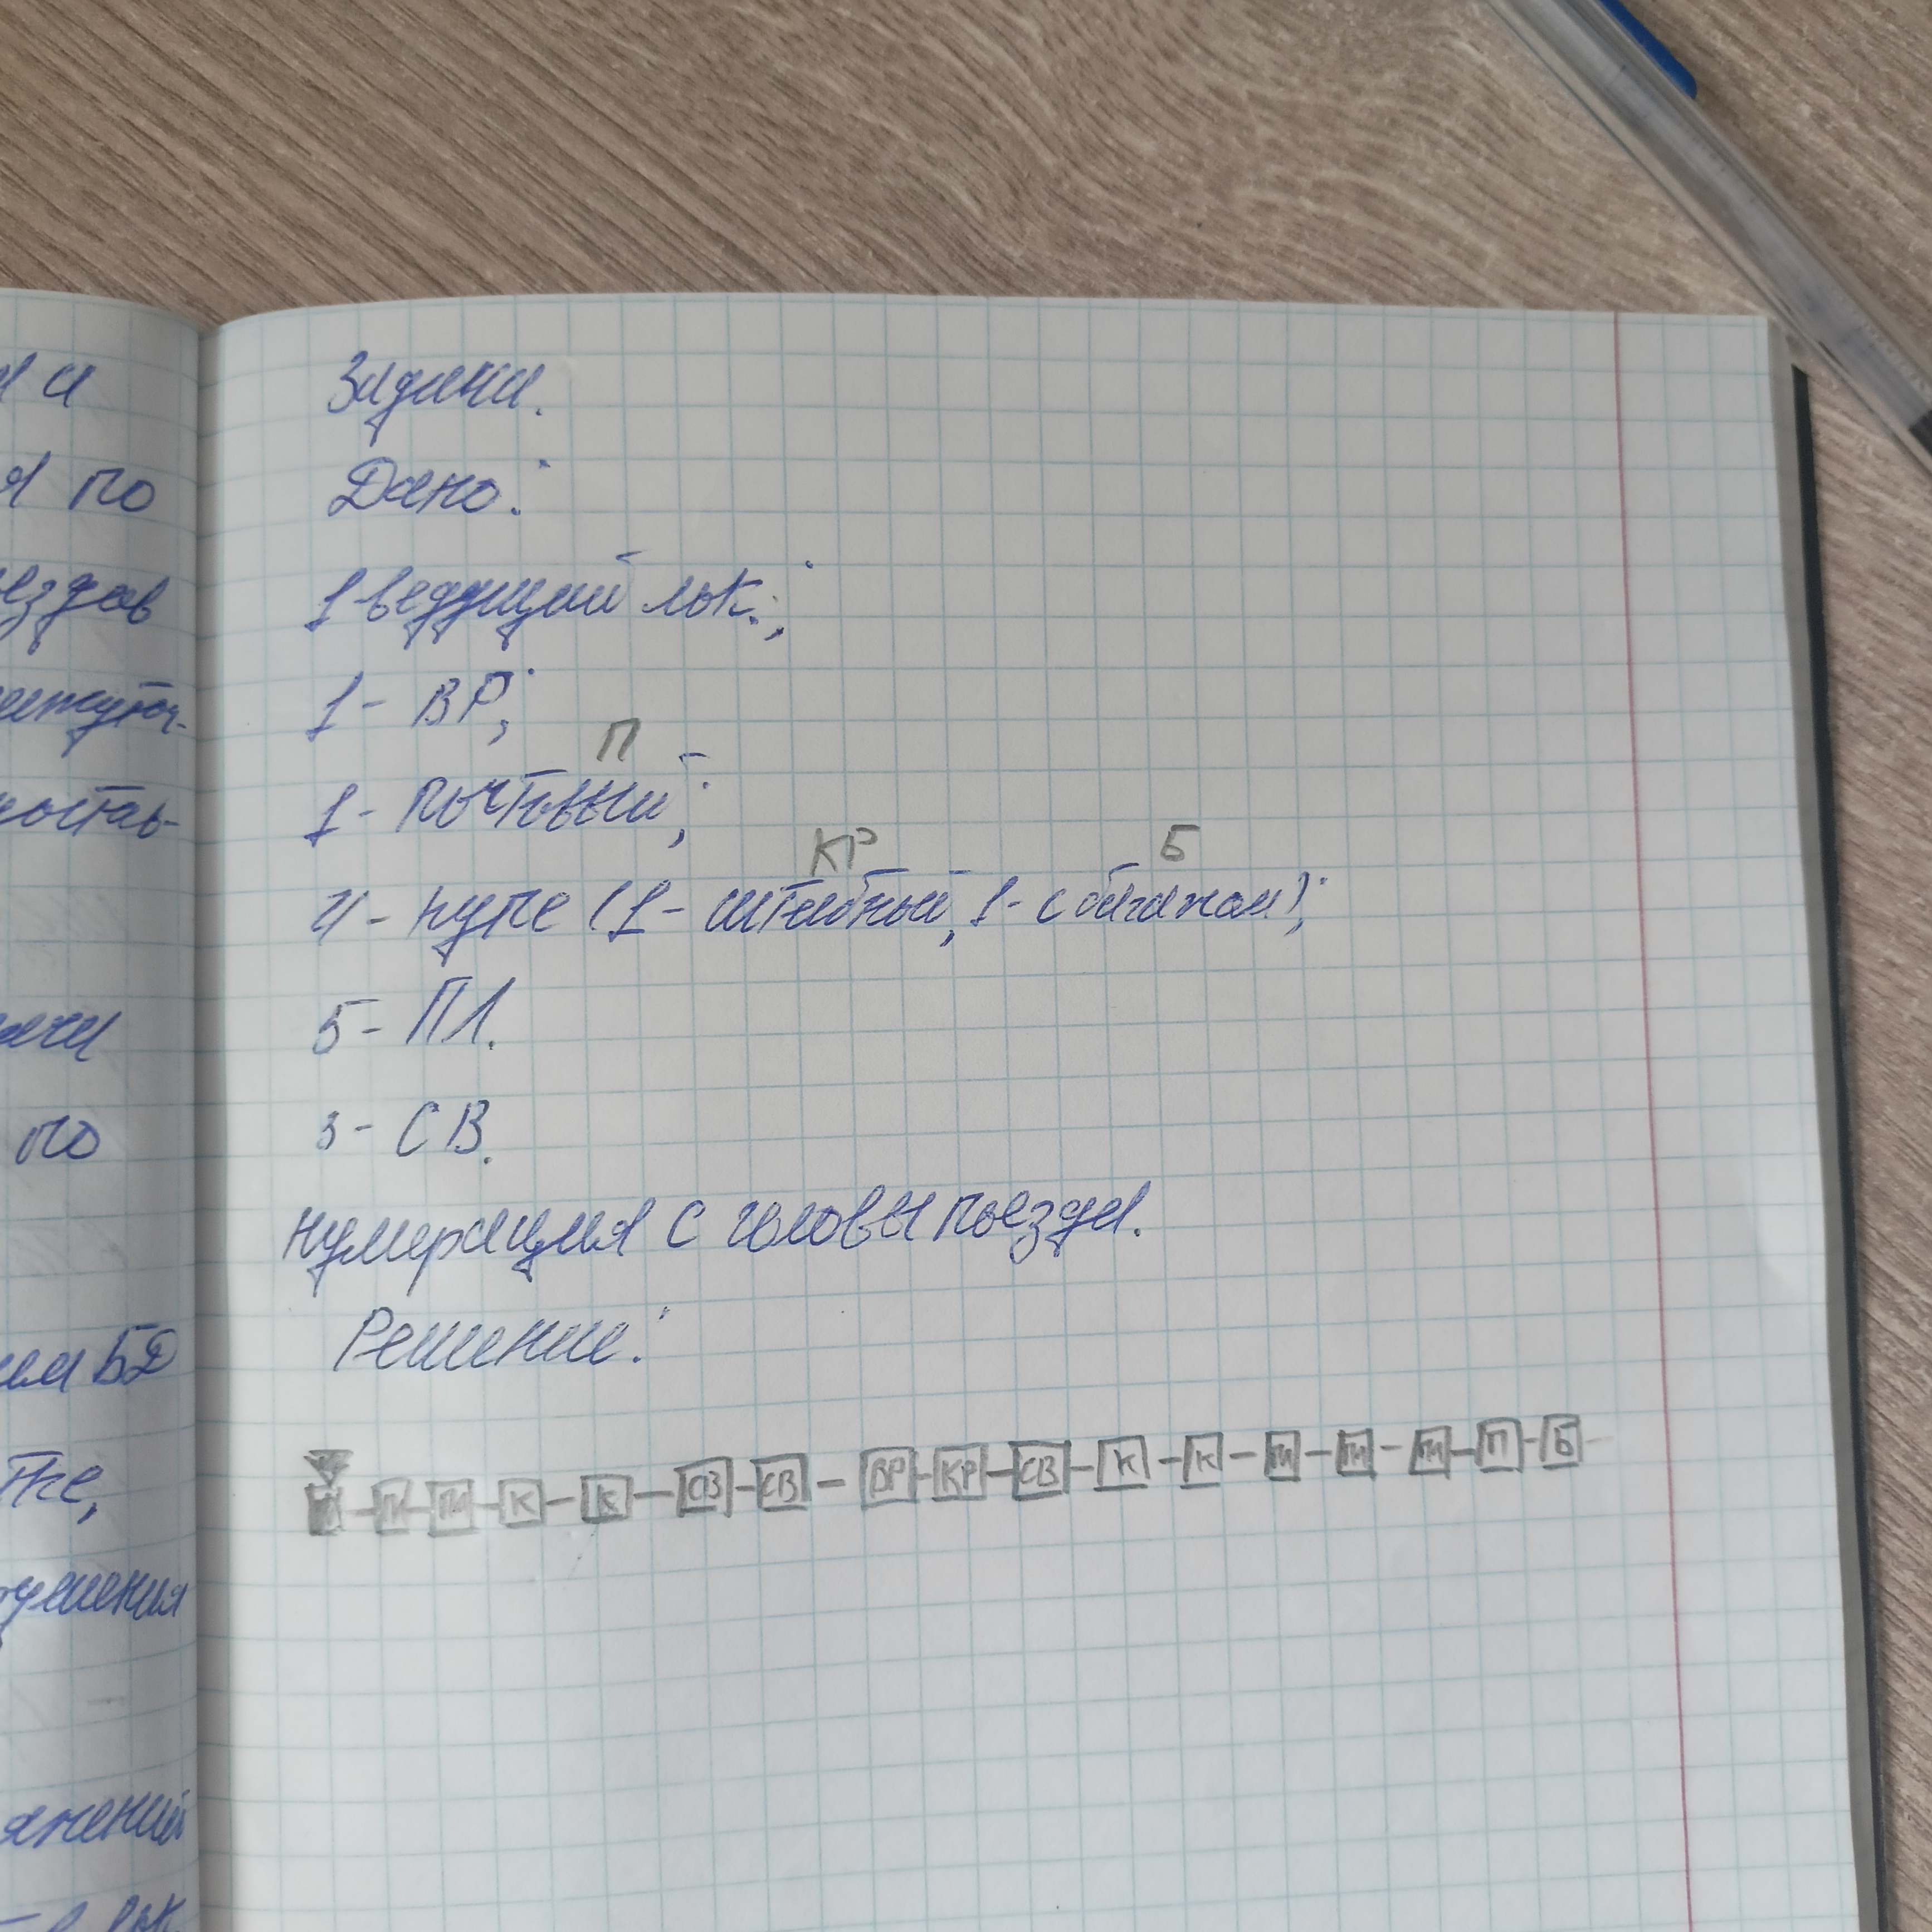 я и
я по
ездов
постав-
по
ем БД
тке,
тушения
яжений
лок.
Задача.
Дано:
1 ведущий лок.;
1 - ВР;
П
1 - почтовый;
КР Б
4 - купе (1 - штабный, 1 - с багажом);
5 - ПЛ.
3 - СВ.
нумерация с головы поезда.
Решение:
ПЛ К К СВ СВ ВР КР СВ К К ПЛ ПЛ ПЛ П Б